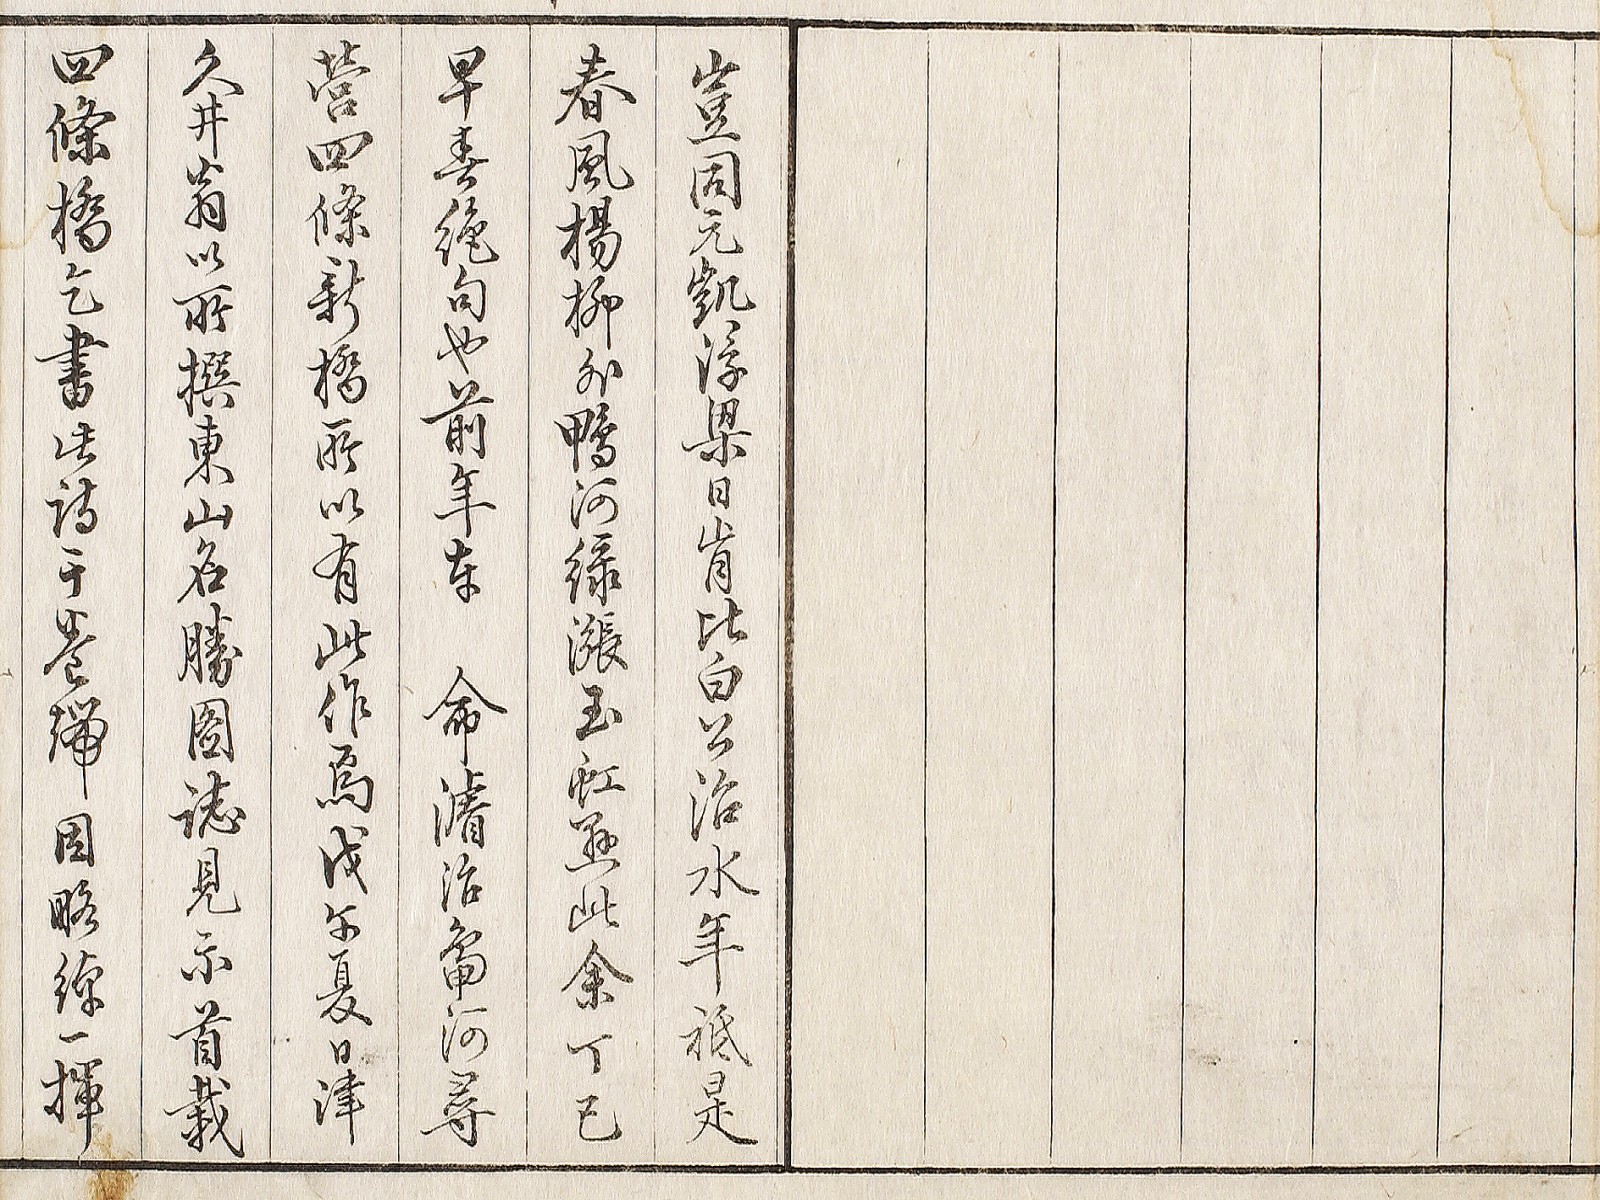 豈因元凱浮梁日肯比白公治水年祗是
春風楊柳外鴨河綠漲玉虹懸此余丁巳
早春絶句也前年在 命濬治鴨河尋
営四條新橋所以有此作焉戊午夏日津
久井翁以所撰東山名勝圖誌見示首載
四條橋乞書此詩于巻端因略綴一揮